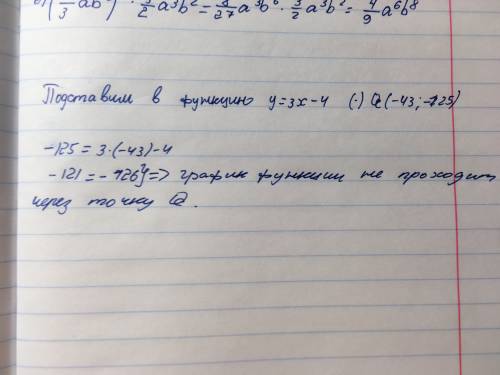 (/3 ab) · 3/2 a³b² = 8/27 a³b⁶ · 3/2 a³b² = 4/9 a⁶b⁸
Подставим в функцию y=3x-4 (·) Q (-43; -125)
-125 = 3·(-43)-4
-121 = - => график функции не проходит
через точку Q.